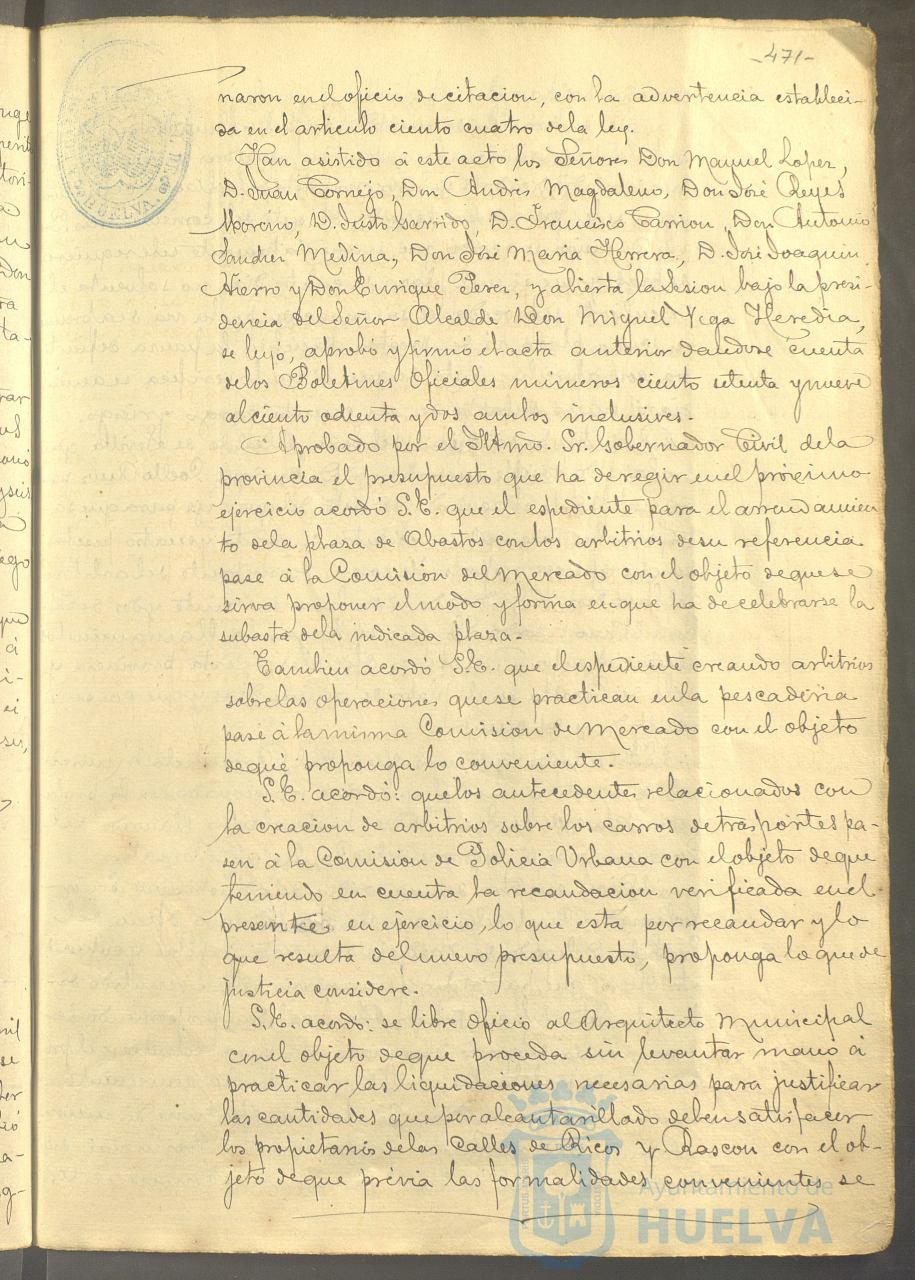 -471-
naron en el oficio de citacion, con la advertencia estableci-
da en el articulo ciento cuatro de la ley.
Han asistido á este acto los Señores Don Manuel Lopez,
D. Juan Cornejo, Don Andrés Magdaleno, Don José Reyes
Moreno, D. Justo Garrido, D. Francisco Carrion, Don Antonio
Sanchez Medina, Don José Maria Herrera, D. José Joaquin
Hierro y Don Enrique Perez, y abierta la Sesion bajo la presi-
dencia del Señor Alcalde Don Miguel Vega Heredia,
se leyó, aprobó y firmó el acta anterior dandose cuenta
de los Boletines Oficiales números ciento setenta y nueve
al ciento ochenta y dos ambos inclusives.
Aprobado por el Iltmo. Sr. Gobernador Civil de la
provincia el presupuesto que ha de regir en el próximo
ejercicio acordó S.E. que el espediente para el arrendamien-
to de la plaza de Abastos con los arbitrios de su referencia
pase á la Comisión del Mercado con el objeto de que se
sirva proponer el modo y forma en que ha de celebrarse la
subasta de la indicada plaza.
Tambien acordó S.E. que el espediente creando arbitrios
sobre las operaciones que se practican en la pescadería
pase á la misma Comision de Mercado con el objeto
de qué proponga lo conveniente.
S.E. acordó: que los antecedentes relacionados con
la creacion de arbitrios sobre los carros de trasportes pa-
sen á la Comisión de Policía Urbana con el objeto de que
teniendo en cuenta la recaudacion verificada en el
presente en ejercicio, lo que está por recaudar y lo
que resulta del nuevo presupuesto, proponga lo que de
justicia considere.
S.E. acordó: se libre oficio al Arquitecto Municipal
con el objeto de que proceda sin levantar mano á
practicar las liquidaciones necesarias para justificar
las cantidades que por alcantarillado deben satisfacer
los propietarios de las Calles de Ricos y Rascon con el ob-
jeto de que prévia las formalidades convenientes se
HUELVA
Ayuntamiento de
HUELVA